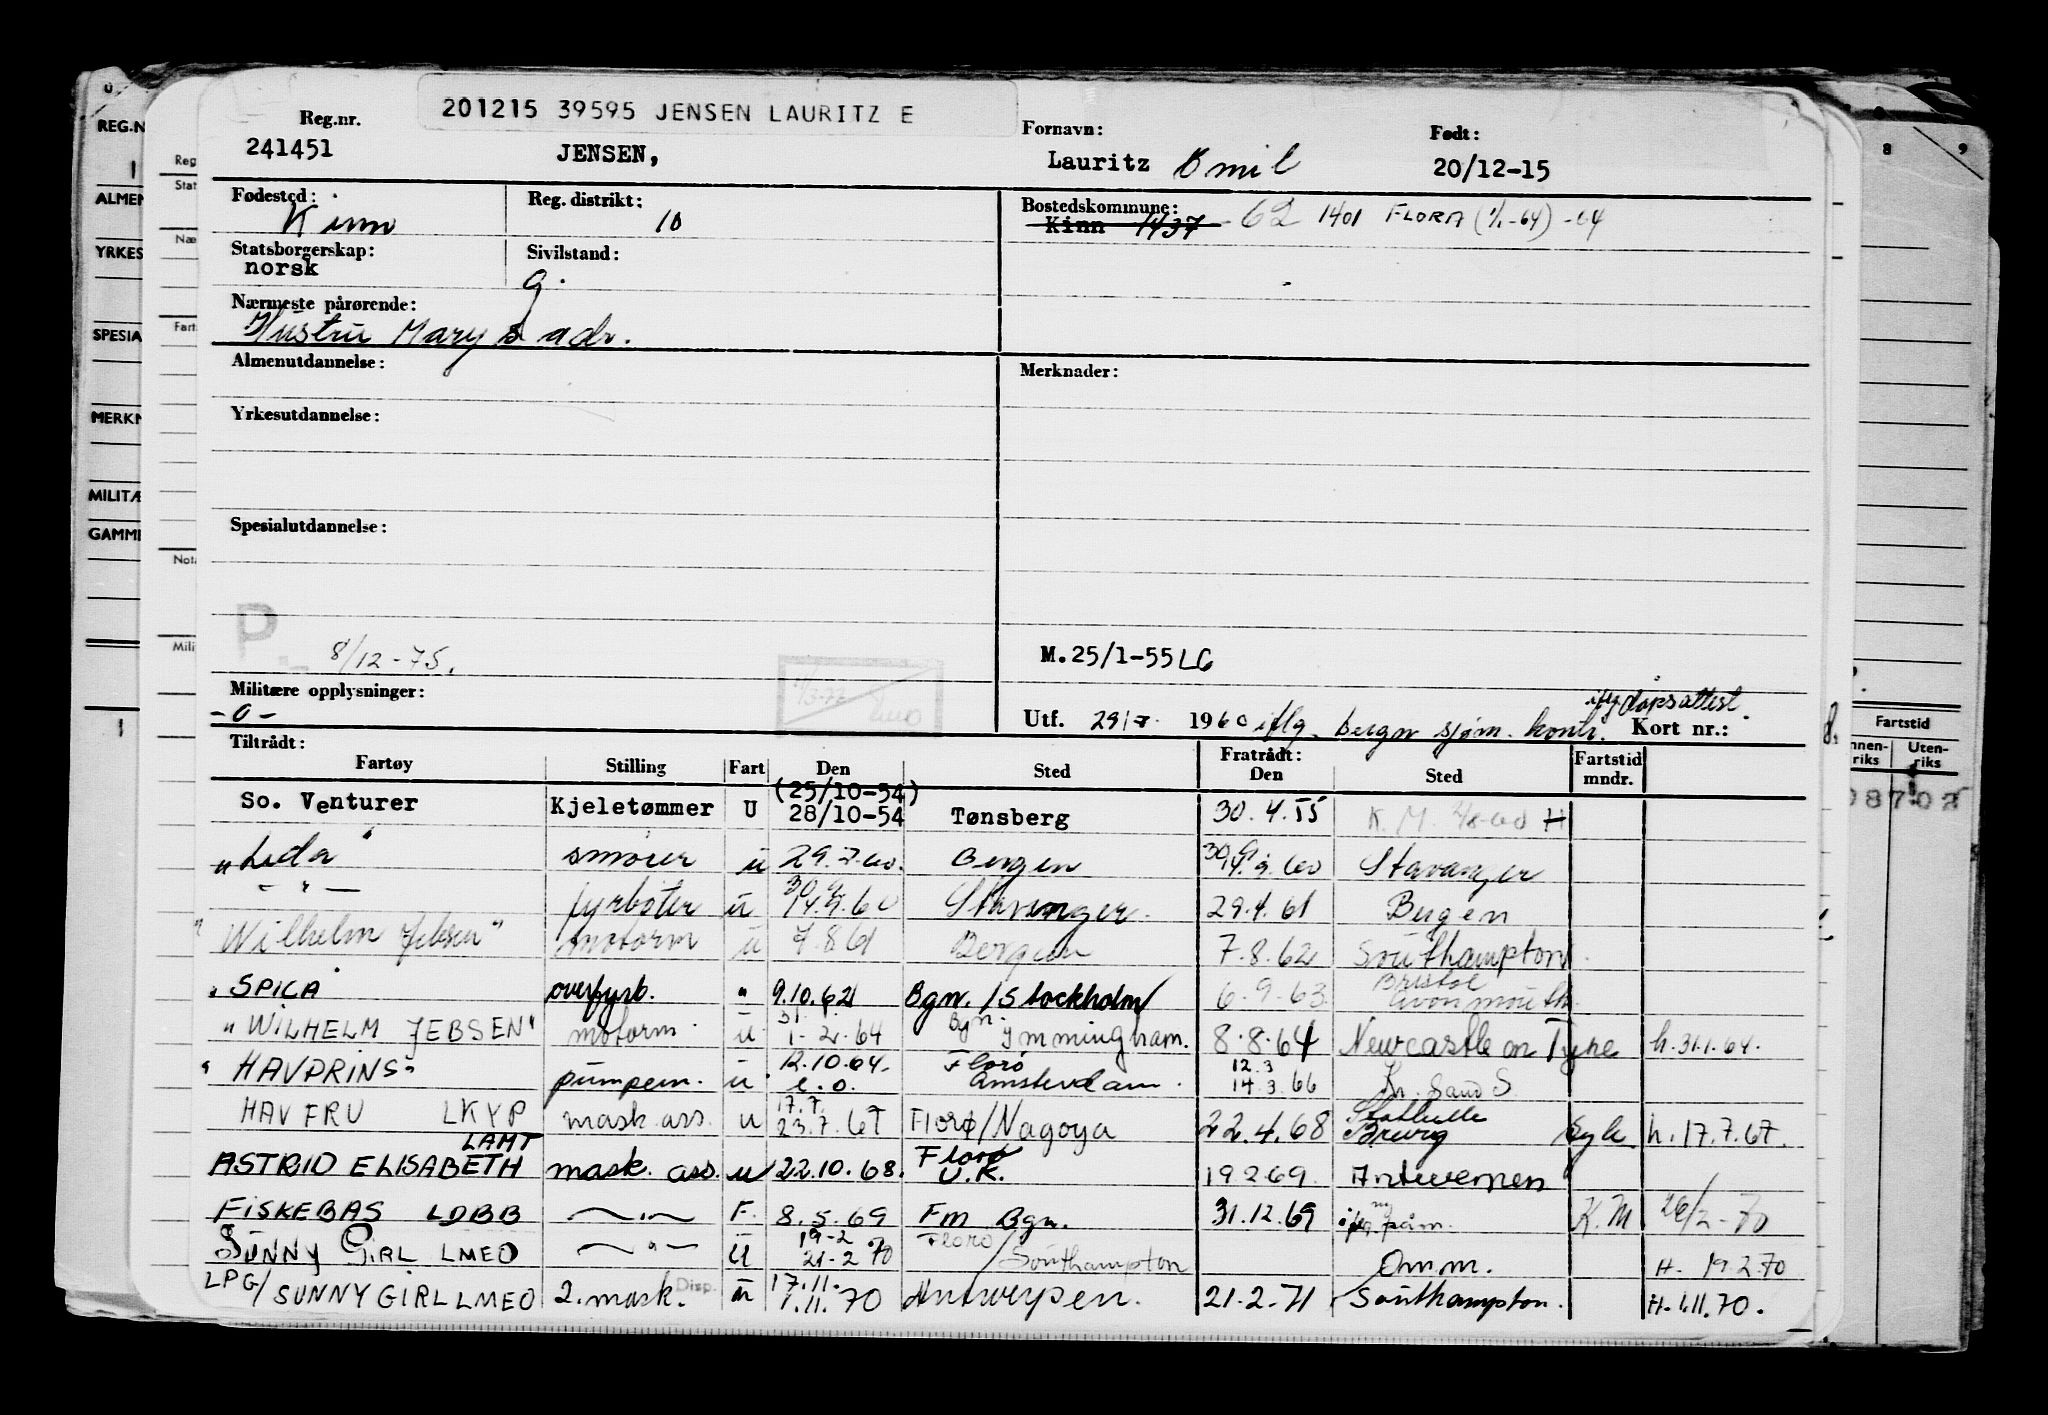 201215 39595 JENSEN LAURITZ E
Reg.nr. 241451 JENSEN, Fornavn: Lauritz Emil Født: 20/12-15
Fødested: Kinn Reg. distrikt: 10 Bostedskommune: Kinn 1437 -62 1401 FLORA (1/1-64) -64
Statsborgerskap: norsk Sivilstand: g.
Nærmeste pårørende:
Hustru Mary s adr.
Almenutdannelse: Merknader:
Yrkesutdannelse:
Spesialutdannelse:
P
8/12-75. M.25/1-55 LG
Militære opplysninger:
-o- Utf. 29/7- 1960 iflg. bergn sjøm. kontr. iflg dåpsattest Kort nr.:
Tiltrådt: Fratrådt:
Fartøy Stilling Fart Den Sted Den Sted Fartstid mndr.
So. Venturer Kjeletømmer U (25/10-54) 28/10-54 Tønsberg 30.4.55 K.M.
"Leda" smører u 29.7.60. Bergen 30.9.60 Stavanger
- " - fyrbøter u 30.9.60 Stavanger. 29.4.61 Bergen
"Wilhelm Jebsen" motorm u 7.8.61 Bergen 7.8.62 Southampton
"SPICA overfyrb. " 9.10.62 Bgn. / Stockholm 6.9.63 Bristol Avonmouth.
"WILHELM JEBSEN" motorm. u 31.1. 1-2-64 Bgn. Immingham. 8.8.64 Newcastle on Tyne h.31.1.64.
"HAVPRINS" pumpem. u 12.10.64. e.o. Florø Amsterdam. 12.3 14.3.66 Kr. Sand S.
HAVFRU LKYP mask ass. u 17.7. 23.7.67 Florø/Nagoya 22.4.68 Stathelle Brevig Syk h.17.7.67.
ASTRID ELISABETH LAMT mask. ass. u 22.10.68. Florø U.K. 19.2.69. Antwerpen
FISKEBAS LDBB - " - F. 8.5.69 Fm Bgn. 31.12.69 iflg påm. K.M 26/2-70
SUNNY GIRL LMEO - " - U 19-2 21-2 70 Florø / Southampton Omm. H. 19.2.70
LPG/ SUNNY GIRL LMEO 2. mask. Disp. u 17.11. 1.11.70 Antwerpen. 21.2.71 Southampton. H.1.11.70.
REG.N
ALMEN
YRKES
SPESIA
MERKN
MILITÆ
GAMME
Reg
Stat
Næ
Fart
Nota
Mili
8 9
Fartstid
nnen-riks Uten-riks